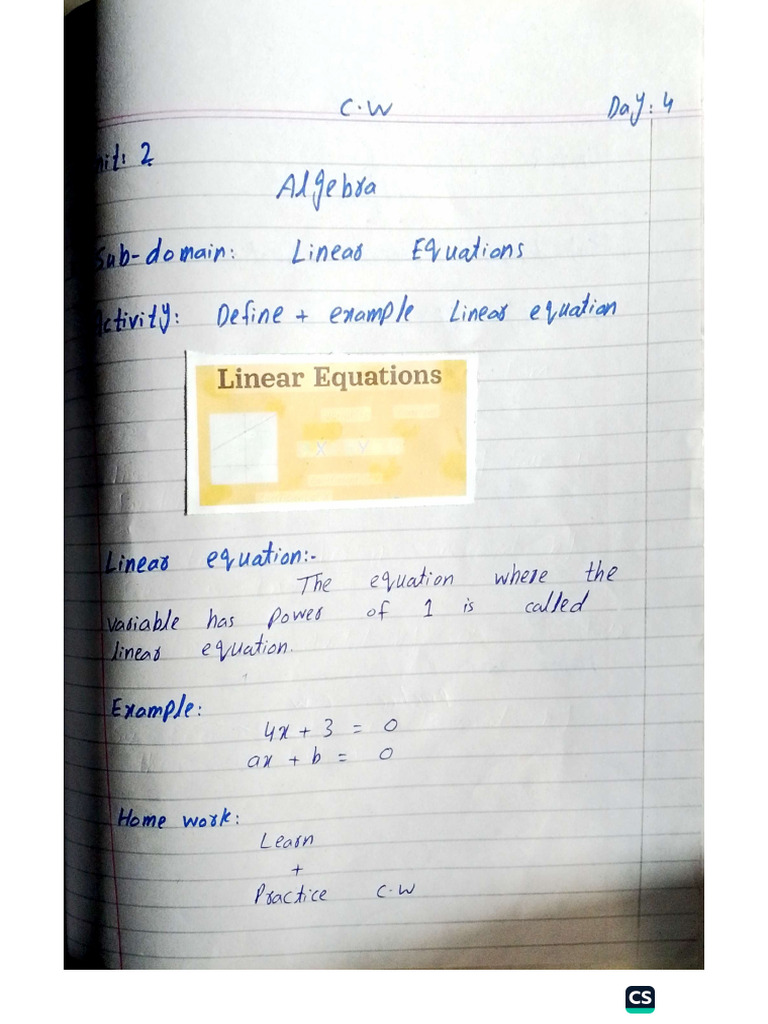 C.W Day: 4
nit: 2
Algebra
Sub-domain: Linear Equations
Activity: Define + example Linear equation
Linear Equations
X Y
Linear equation:-
The equation where the
variable has power of 1 is called
linear equation.
Example:
4x + 3 = 0
ax + b = 0
Home work:
Learn
+
Practice C.W
CS